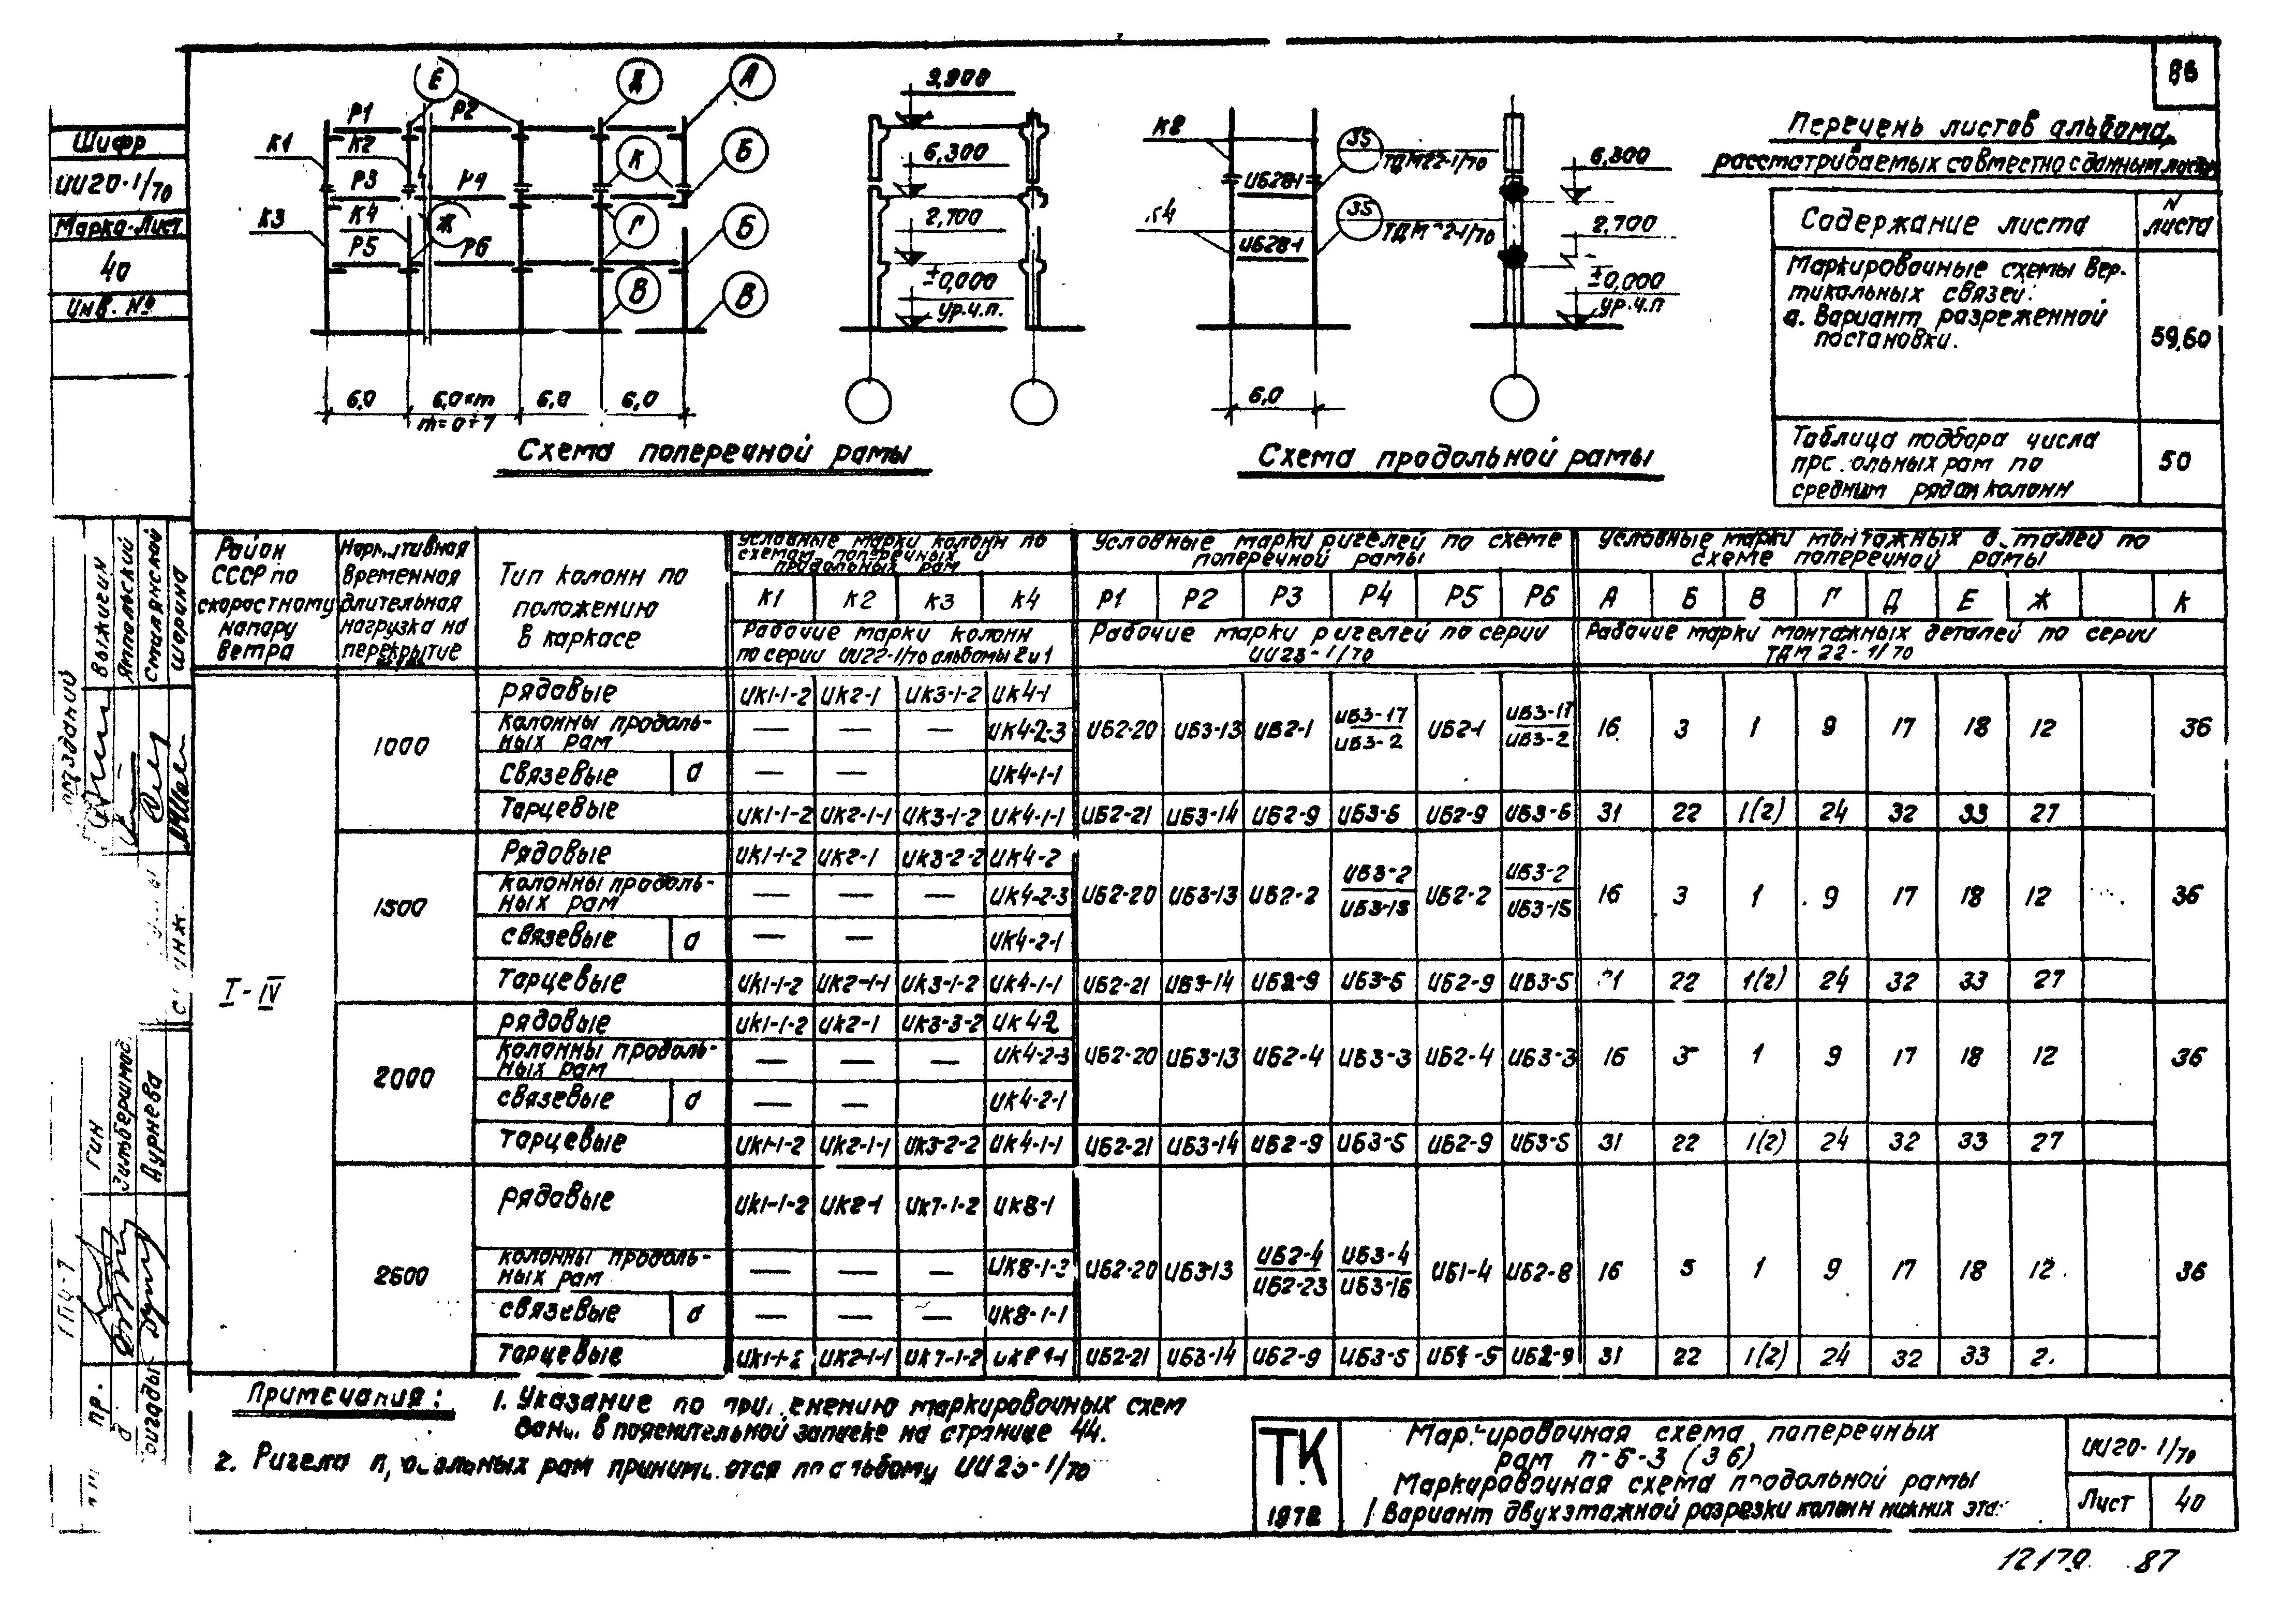 86
Шифр
ИИ20-1/70
Марка-Лист
40
Инв. №
Е
Д
А
Р1
Р2
К1
К2
К
Б
Р3
Р4
К3
К4
Ж
Г
Б
Р5
Р6
В
В
6,0
6,0×m
6,0
6,0
m=0÷7
9,900
6,300
2,700
±0,000
ур.ч.п.
Схема поперечной рамы
К2
35
ТДМ22-1/70
ИБ28-1
К4
35
ИБ28-1
6,0
6,300
2,700
±0,000
ур.ч.п
Схема продольной рамы
Перечень листов альбома,
рассматриваемых совместно с данным листом
Содержание листа
N листа
Маркировочные схемы вер-
тикальных связей:
а. Вариант разреженной
постановки.
59,60
Таблица подбора числа
по
средним рядам колонн
50
Район СССР по скоростному напору ветра
Нормативная временная длительная нагрузка на перекрытие
Тип колонн по положению в каркасе
Условные марки колонн по схемам поперечных и продольных рам
Условные марки ригелей по схеме поперечной рамы
Условные марки монтажных деталей по схеме поперечной рамы
К1 К2 К3 К4 Р1 Р2 Р3 Р4 Р5 Р6 А Б В Г Д Е Ж К
Рабочие марки колонн по серии ИИ22-1/70 альбомы 2 и 1
Рабочие марки ригелей по серии ИИ23-1/70
Рабочие марки монтажных деталей по серии ТДМ 22-1/70
I-IV
1000
рядовые ИК1-1-2 ИК2-1 ИК3-1-2 ИК4-1
колонны продоль-
ных рам — — — ИК4-2-3
ИБ2-20 ИБ3-13 ИБ2-1 ИБ3-17 ИБ3-2 ИБ2-1 ИБ3-17 ИБ3-2 16 3 1 9 17 18 12 36
связевые а — — ИК4-1-1
Торцевые ИК1-1-2 ИК2-1-1 ИК3-1-2 ИК4-1-1 ИБ2-21 ИБ3-14 ИБ2-9 ИБ2-9 31 22 1(2) 24 32 33 27
1500
Рядовые ИК1-1-2 ИК2-1 ИК3-2-2 ИК4-2
колонны продоль-
ных рам — — — ИК4-2-3
ИБ2-20 ИБ3-13 ИБ2-2 ИБ3-2 ИБ2-2 ИБ3-2 ИБ3-15 16 3 1 9 17 18 12 36
связевые а — — ИК4-2-1
торцевые ИК1-1-2 ИК2-1-1 ИК3-1-2 ИК4-1-1 ИБ2-21 ИБ3-14 ИБ2-9 ИБ3-5 ИБ2-9 ИБ3-5 22 1(2) 24 32 33 27
2000
рядовые ИК1-1-2 ИК2-1 ИК3-3-2 ИК4-2
колонны продоль-
ных рам — — — ИК4-2-3
ИБ2-20 ИБ3-13 ИБ2-4 ИБ3-3 ИБ2-4 ИБ3-3 16 1 9 17 18 12 36
связевые а — — ИК4-2-1
торцевые ИК1-1-2 ИК2-1-1 ИК3-2-2 ИК4-1-1 ИБ2-21 ИБ3-14 ИБ2-9 ИБ3-5 ИБ2-9 ИБ3-5 31 22 1(2) 24 32 33 27
2500
рядовые ИК1-1-2 ИК2-1 ИК7-1-2 ИК8-1
колонны продоль-
ных рам — — — ИК8-1-3
ИБ2-20 ИБ3-13 ИБ2-4 ИБ2-23 ИБ3-4 ИБ3-16 ИБ1-4 ИБ2-8 16 1 9 17 18 12 36
связевые а — — — ИК8-1-1
торцевые ИК2-1-1 ИК7-1-2 ИБ2-21 ИБ3-14 ИБ2-9 ИБ3-5 ИБ2-9 31 22 1(2) 24 32 33
Примечания:
1. Указание по применению маркировочных схем
в пояснительной записке на странице 44.
2. Ригеля продольных рам принимаются по альбому
ТК
1972
Маркировочная схема поперечных
рам п-6-3 (36)
Маркировочная схема продольной рамы
Вариант двухэтажной разрезки колонн нижних
ИИ20-1/70
Лист
40
12179 87
Выжигин
Ямпольский
Смилянский
Шарина
гин
Дурнева